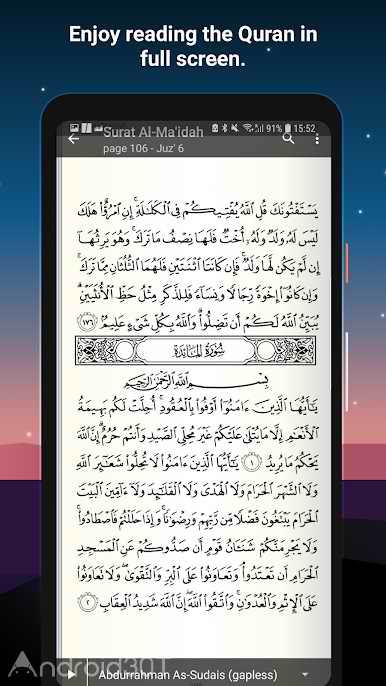 Enjoy reading the Quran in
full screen.
91% 15:52
Surat Al-Ma'idah
page 106 - Juz' 6
يَسْتَفْتُونَكَ قُلِ ٱللَّهُ يُفْتِيكُمْ فِى ٱلْكَلَٰلَةِ ۚ إِنِ ٱمْرُؤٌا۟ هَلَكَ
لَيْسَ لَهُۥ وَلَدٌ وَلَهُۥٓ أُخْتٌ فَلَهَا نِصْفُ مَا تَرَكَ ۚ وَهُوَ يَرِثُهَآ
إِن لَّمْ يَكُن لَّهَا وَلَدٌ ۚ فَإِن كَانَتَا ٱثْنَتَيْنِ فَلَهُمَا ٱلثُّلُثَانِ مِمَّا تَرَكَ ۚ
وَإِن كَانُوٓا۟ إِخْوَةً رِّجَالًا وَنِسَآءً فَلِلذَّكَرِ مِثْلُ حَظِّ ٱلْأُنثَيَيْنِ ۗ
يُبَيِّنُ ٱللَّهُ لَكُمْ أَن تَضِلُّوا۟ ۗ وَٱللَّهُ بِكُلِّ شَىْءٍ عَلِيمٌۢ ١٧٦
سُورَةُ المَائِدَةِ
بِسْمِ ٱللَّهِ ٱلرَّحْمَٰنِ ٱلرَّحِيمِ
يَٰٓأَيُّهَا ٱلَّذِينَ ءَامَنُوٓا۟ أَوْفُوا۟ بِٱلْعُقُودِ ۚ أُحِلَّتْ لَكُم بَهِيمَةُ
ٱلْأَنْعَٰمِ إِلَّا مَا يُتْلَىٰ عَلَيْكُمْ غَيْرَ مُحِلِّى ٱلصَّيْدِ وَأَنتُمْ حُرُمٌ ۗ إِنَّ ٱللَّهَ
يَحْكُمُ مَا يُرِيدُ ١ يَٰٓأَيُّهَا ٱلَّذِينَ ءَامَنُوا۟ لَا تُحِلُّوا۟ شَعَٰٓئِرَ ٱللَّهِ
وَلَا ٱلشَّهْرَ ٱلْحَرَامَ وَلَا ٱلْهَدْىَ وَلَا ٱلْقَلَٰٓئِدَ وَلَآ ءَآمِّينَ ٱلْبَيْتَ
ٱلْحَرَامَ يَبْتَغُونَ فَضْلًا مِّن رَّبِّهِمْ وَرِضْوَٰنًا ۚ وَإِذَا حَلَلْتُمْ فَٱصْطَادُوا۟ ۚ
وَلَا يَجْرِمَنَّكُمْ شَنَـَٔانُ قَوْمٍ أَن صَدُّوكُمْ عَنِ ٱلْمَسْجِدِ
ٱلْحَرَامِ أَن تَعْتَدُوا۟ ۘ وَتَعَاوَنُوا۟ عَلَى ٱلْبِرِّ وَٱلتَّقْوَىٰ ۖ وَلَا تَعَاوَنُوا۟
عَلَى ٱلْإِثْمِ وَٱلْعُدْوَٰنِ ۚ وَٱتَّقُوا۟ ٱللَّهَ ۖ إِنَّ ٱللَّهَ شَدِيدُ ٱلْعِقَابِ ٢
Android301
Abdurrahman As-Sudais (gapless)